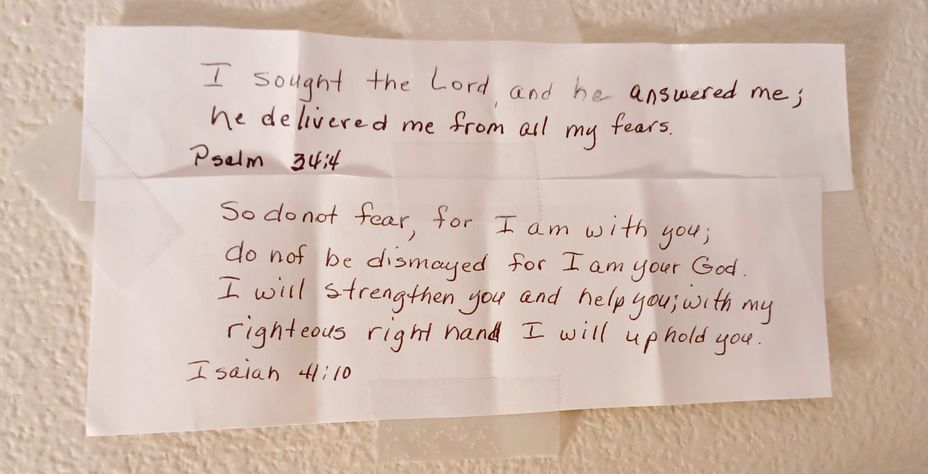 I sought the Lord, and he answered me;
he delivered me from all my fears.
Psalm 34:4
So do not fear, for I am with you;
do not be dismayed for I am your God.
I will strengthen you and help you; with my
righteous right hand I will uphold you.
Isaiah 41:10